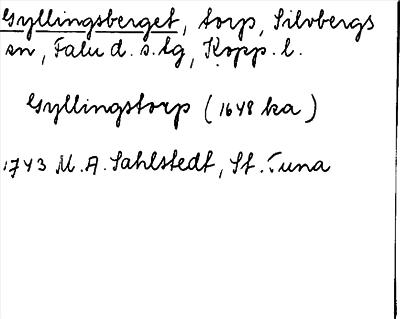 Gyllingsberget, torp, Silvbergs
sn, Falu d. s. lg, Kopp. l.
Gyllingstorp (1648 ka)
1743 M. A. Sahlstedt, St. Tuna